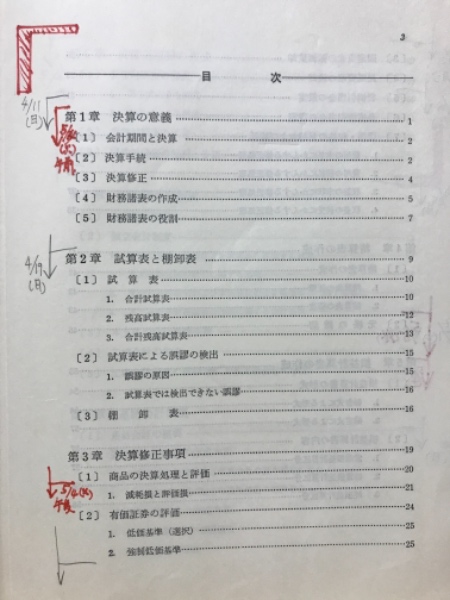 3
目 次
4/11
(日)
第1章 決算の意義 1
〔1〕 会計期間と決算 2
〔2〕 決算手続 2
〔3〕 決算修正 4
〔4〕 財務諸表の作成 5
〔5〕 財務諸表の役割 7
4/19
(月)
第2章 試算表と棚卸表 9
〔1〕 試算表 10
1. 合計試算表 10
2. 残高試算表 12
3. 合計残高試算表 13
〔2〕 試算表による誤謬の検出 15
1. 誤謬の原因 15
2. 試算表では検出できない誤謬 16
〔3〕 棚卸表 16
第3章 決算修正事項 19
〔1〕 商品の決算処理と評価 20
1. 減耗損と評価損 21
〔2〕 有価証券の評価 24
1. 低価基準（選択） 25
2. 強制低価基準 25